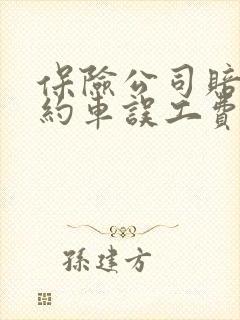 保險公司賠
約車誤工費
孫建方